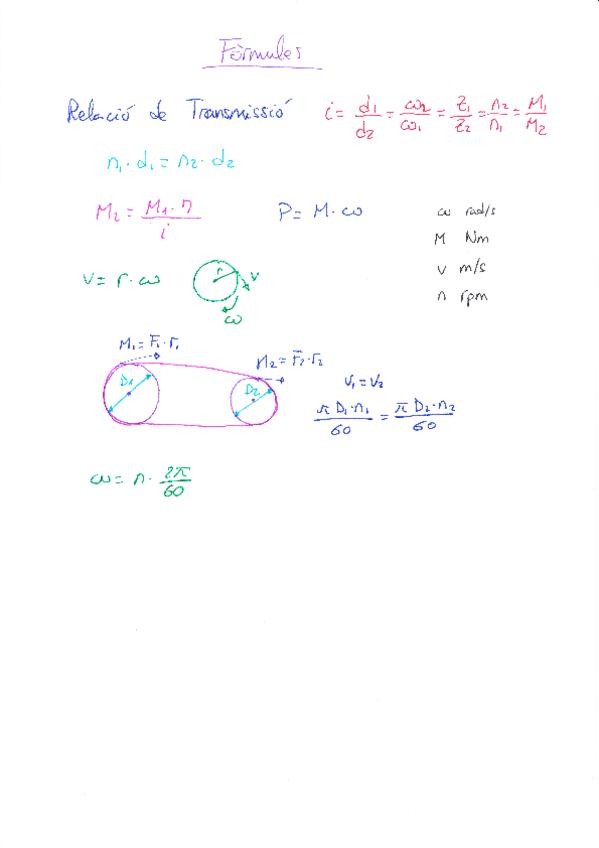 Fórmules
Relació de Transmissió i = d1/d2 = ω2/ω1 = Z1/Z2 = n2/n1 = M1/M2
n1 · d1 = n2 · d2
M2 = M1 · η / i P = M · ω ω rad/s
M Nm
v = r · ω r v v m/s
n rpm
ω
M1 = F1 · r1
M2 = F2 · r2
D1 D2 v1 = v2
π D1 · n1 / 60 = π D2 · n2 / 60
ω = n · 2π/60